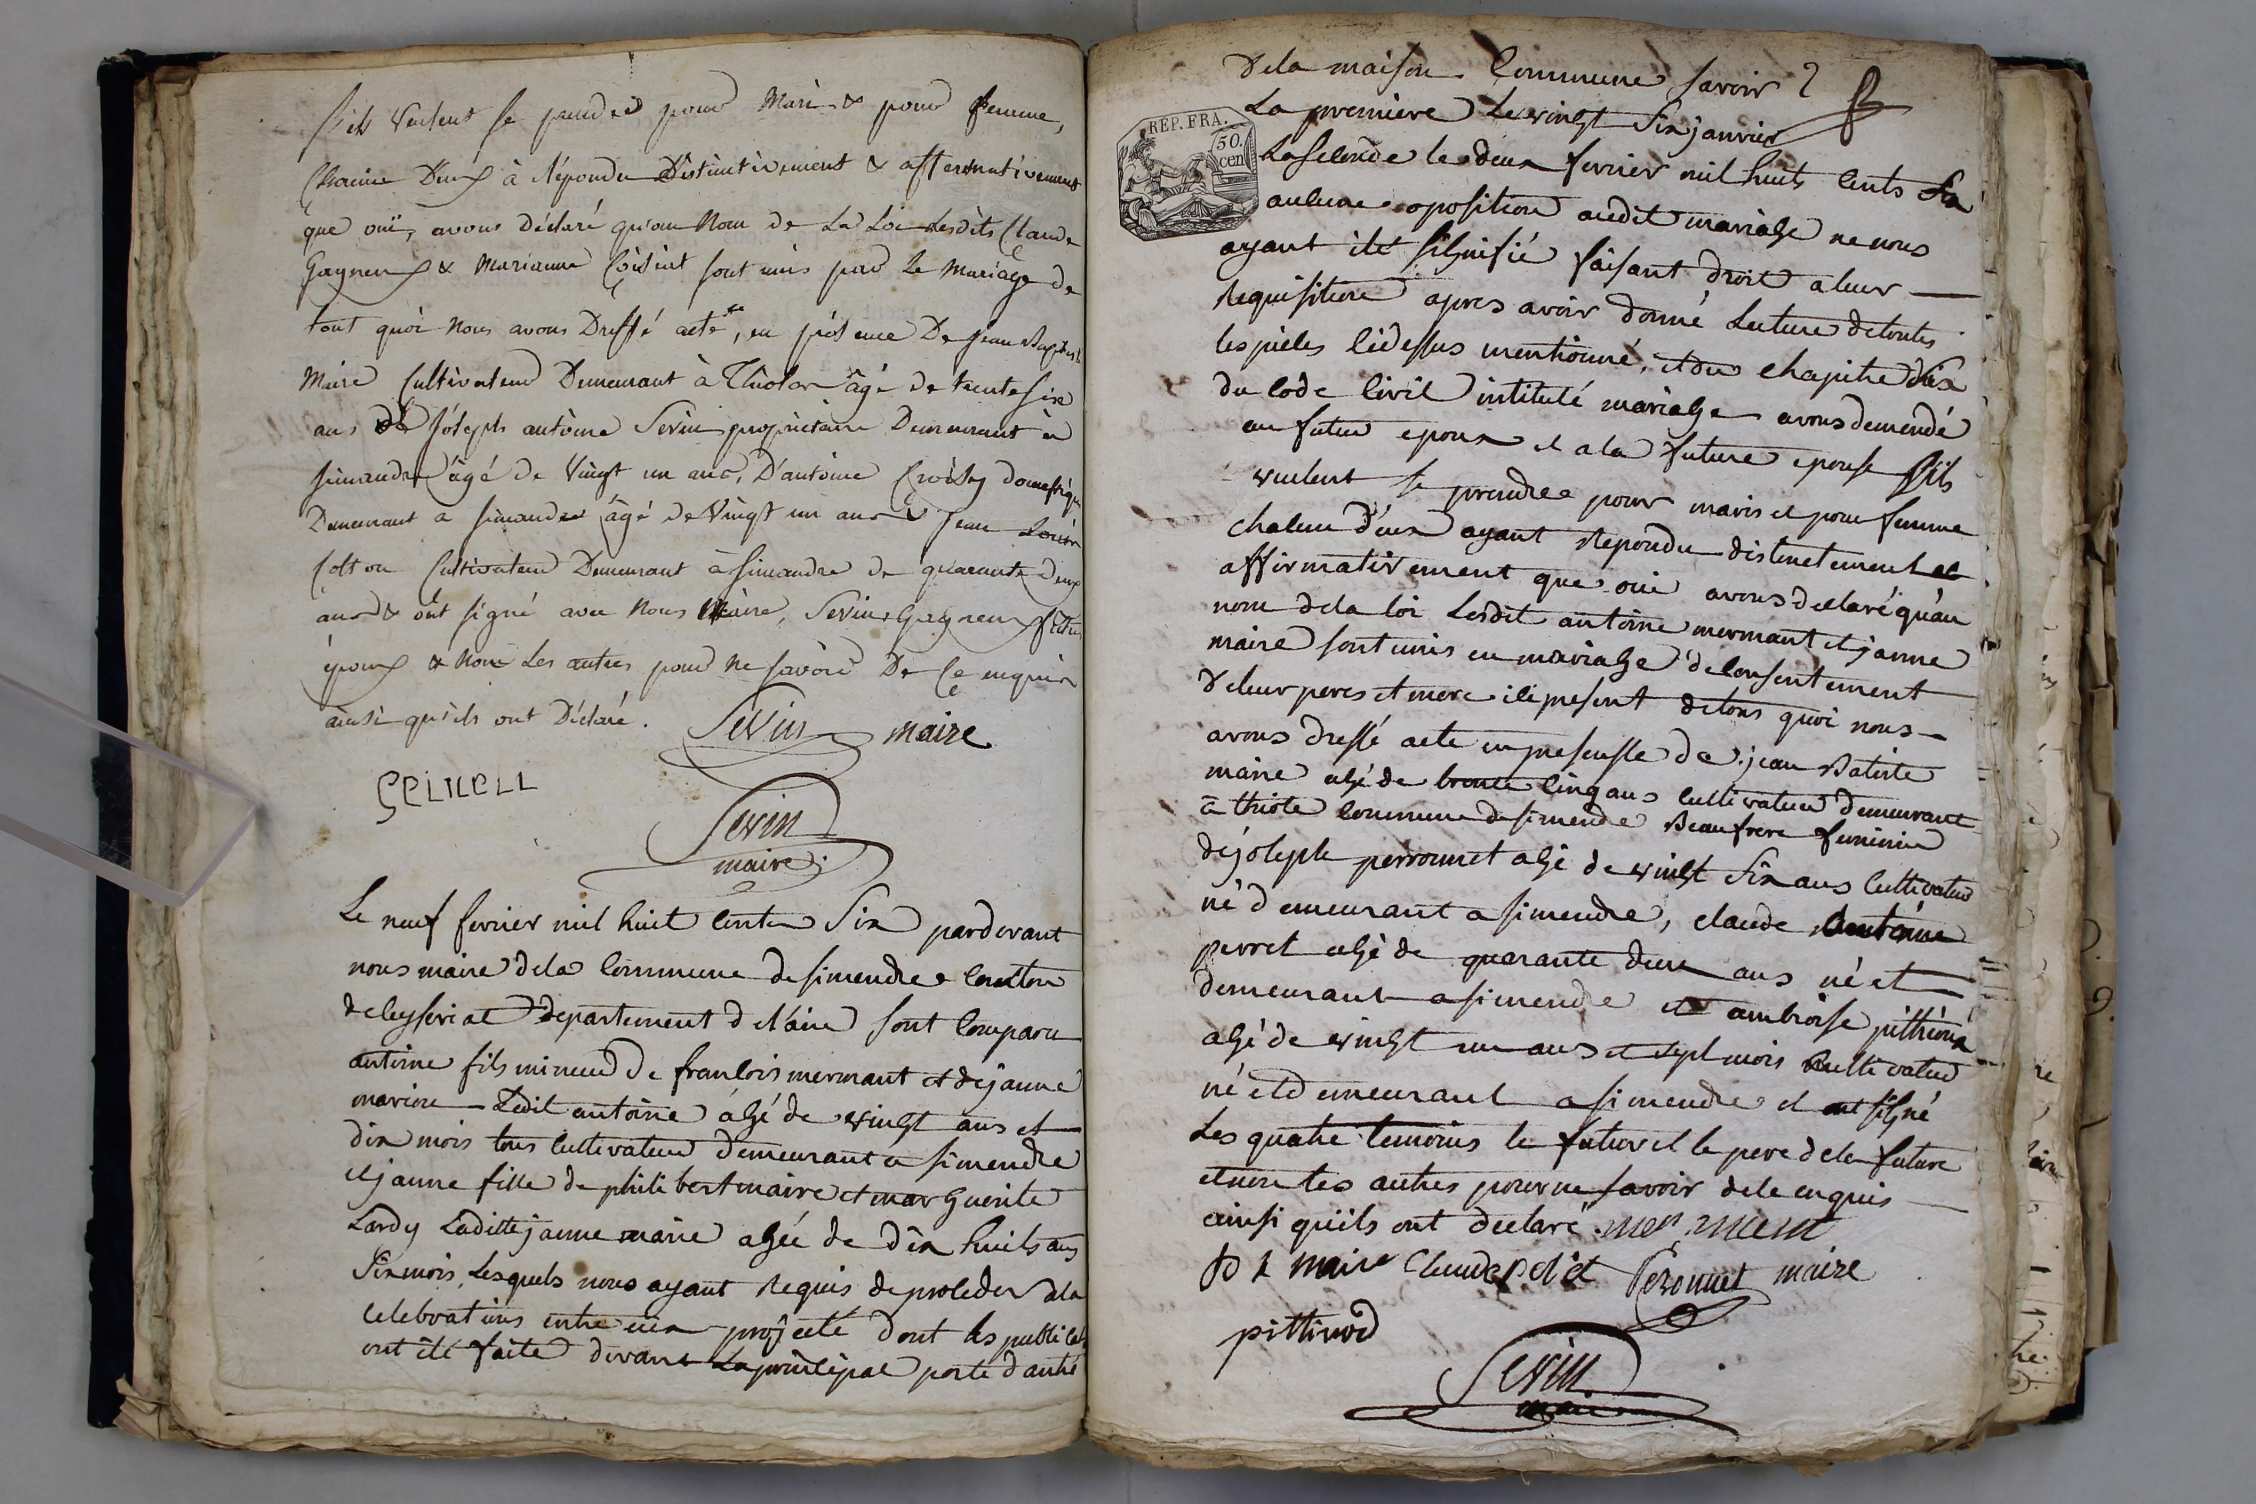 s'ils veulent se prendre pour Mari & pour femme,
Chacun D'eux à répondu Distinctivement & affermativement
que oui, avons Déclaré qu'au Nom de La Loi Lesdits Claude
Gagneux & Marianne sont unis par Le Mariage de
tout quoi Nous avons Dressé acte, en présence De Jean Baptiste
Maire Cultivateur Demeurant à Thiolar âgé de trente six
ans De Jóseph antoine Sevin propriétaire Demeurant à
simandre âgé de Vingt un ans, D'antoine Croisy domestique
Demeurant a simandre âgé de Vingt un ans & Jean Louis
Cotton Cultivateur Demeurant à Simandre de quarante Deux
ans & ont signé avec Nous Maire, Sevin, Gagneux futur
époux & Non Les autres pour Ne savoir De Ce enquis
ainsi qu'ils ont Déclaré.
Sevin maire
Sevin
maire
Le neuf fevrier mil huit cents Six pardevant
nous maire dela Commune de simendre Canton
de Ceyseriat departement del'ain sont Comparu
antoine fils mineur de francois mermant et de janne
marion Ledit antoine âgé de vingt ans et
dix mois tous Cultivateur demeurant a simendre
et janne fille de philibert maire et marguerite
Lardy Laditte janne maire agée de dix huits ans
Six mois, Lesquels nous ayant requis de proceder ala
celebrations entre eux projeté dont les public
ont été faite devant La principal porte d'antré
dela maison Commune savoir
La premiere Le vingt Six janvier
REP. FRA.
50.
cen
La seconde le deux fevrier mil huits cents Six
aucune oposition audit mariage ne nous
ayant été signifié faisant droit a leur
requisition apres avoir donné Lecture de toutes
les pieces cidessus mentionné, et du chapitre Six
du Code Civil intitulé mariage avons demendé
au futur epoux et a la future epouse S'ils
veulent se prendre pour maris et pour femme
chacun d'eux ayant repondu distinctement et
affirmativement que oui avons declaré qu'au
nom dela loi Lesdit antoine mermant et janne
maire sont unis en mariage de Consentement
de leur peres et mere ici present de tous quoi nous
avons dressé acte en presensse de jean Batiste
maire agé de trente Cinq ans Cultivateur demeurant
a thiole Commune de simendre Beaufrere feminin
de joseph perronnet agé de vingt Six ans Cultivateur
né demeurant a simendre, claude Antoine
perret agé de quarante deux ans né et
demeurant a simendre et ambroise pittiond
agé de vingt un ans et sept mois Cultivateur
né et demeurant a simendre et ont signé
Les quatre temoins le futur et le pere de la future
et non les autres pour ne savoir de ce enquis
ainsi qu'ils ont declaré mermant
maire Claude Peronnet maire
pittiond
Sevin
maire